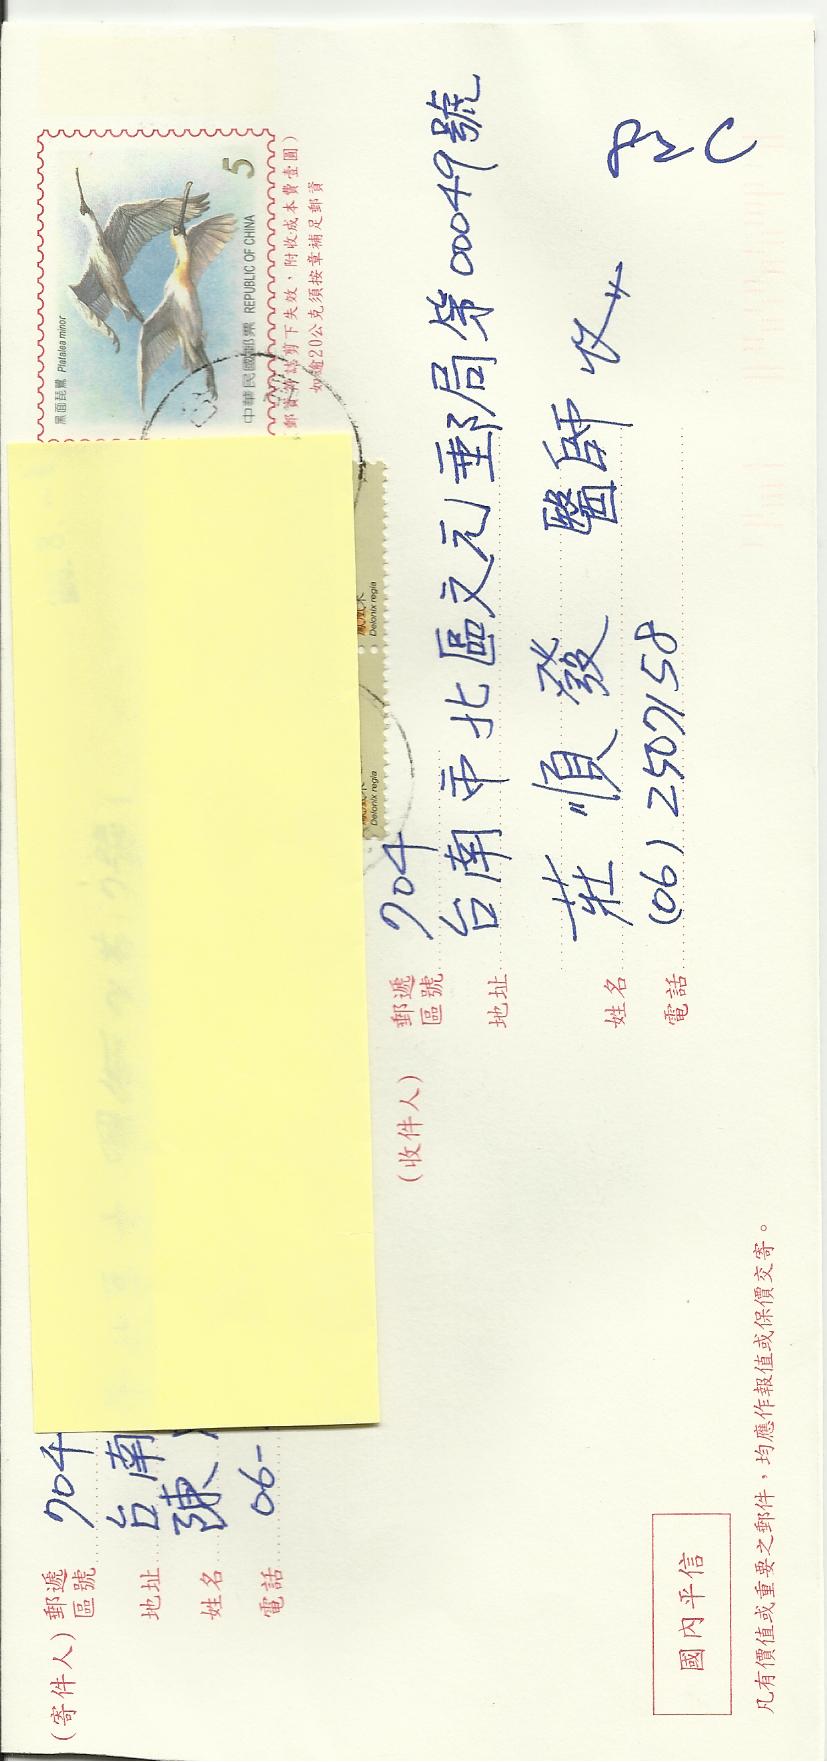 (寄件人)
郵遞區號 704
地址 台南
姓名 陳
電話 06-
黑面琵鷺 Platalea minor
5
中華民國郵票 REPUBLIC OF CHINA
郵資符誌剪下失效,附收成本費壹圓)
如逾20公克須按章補足郵資
Delonix regia
Delonix regia
(收件人)
郵遞區號 704
地址 台南市北區文元郵局第00049號
姓名 莊順發 醫師 收
電話 (06) 2507158
國內平信
凡有價值或重要之郵件,均應作報值或保價交寄。